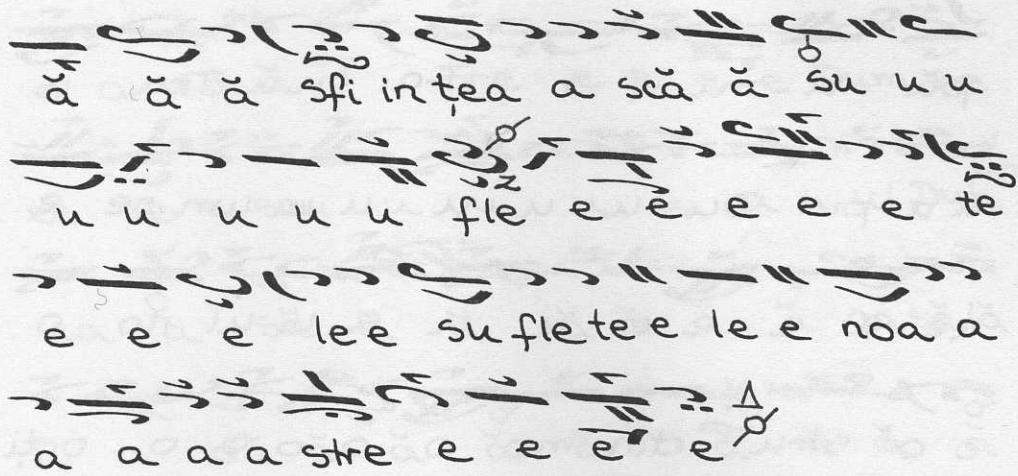 ă ă ă sfi in țea a scă ă su u u
u u u u u fle e e e e e te
e e e le e su fle te e le e noa a
a a a a stre e e e e